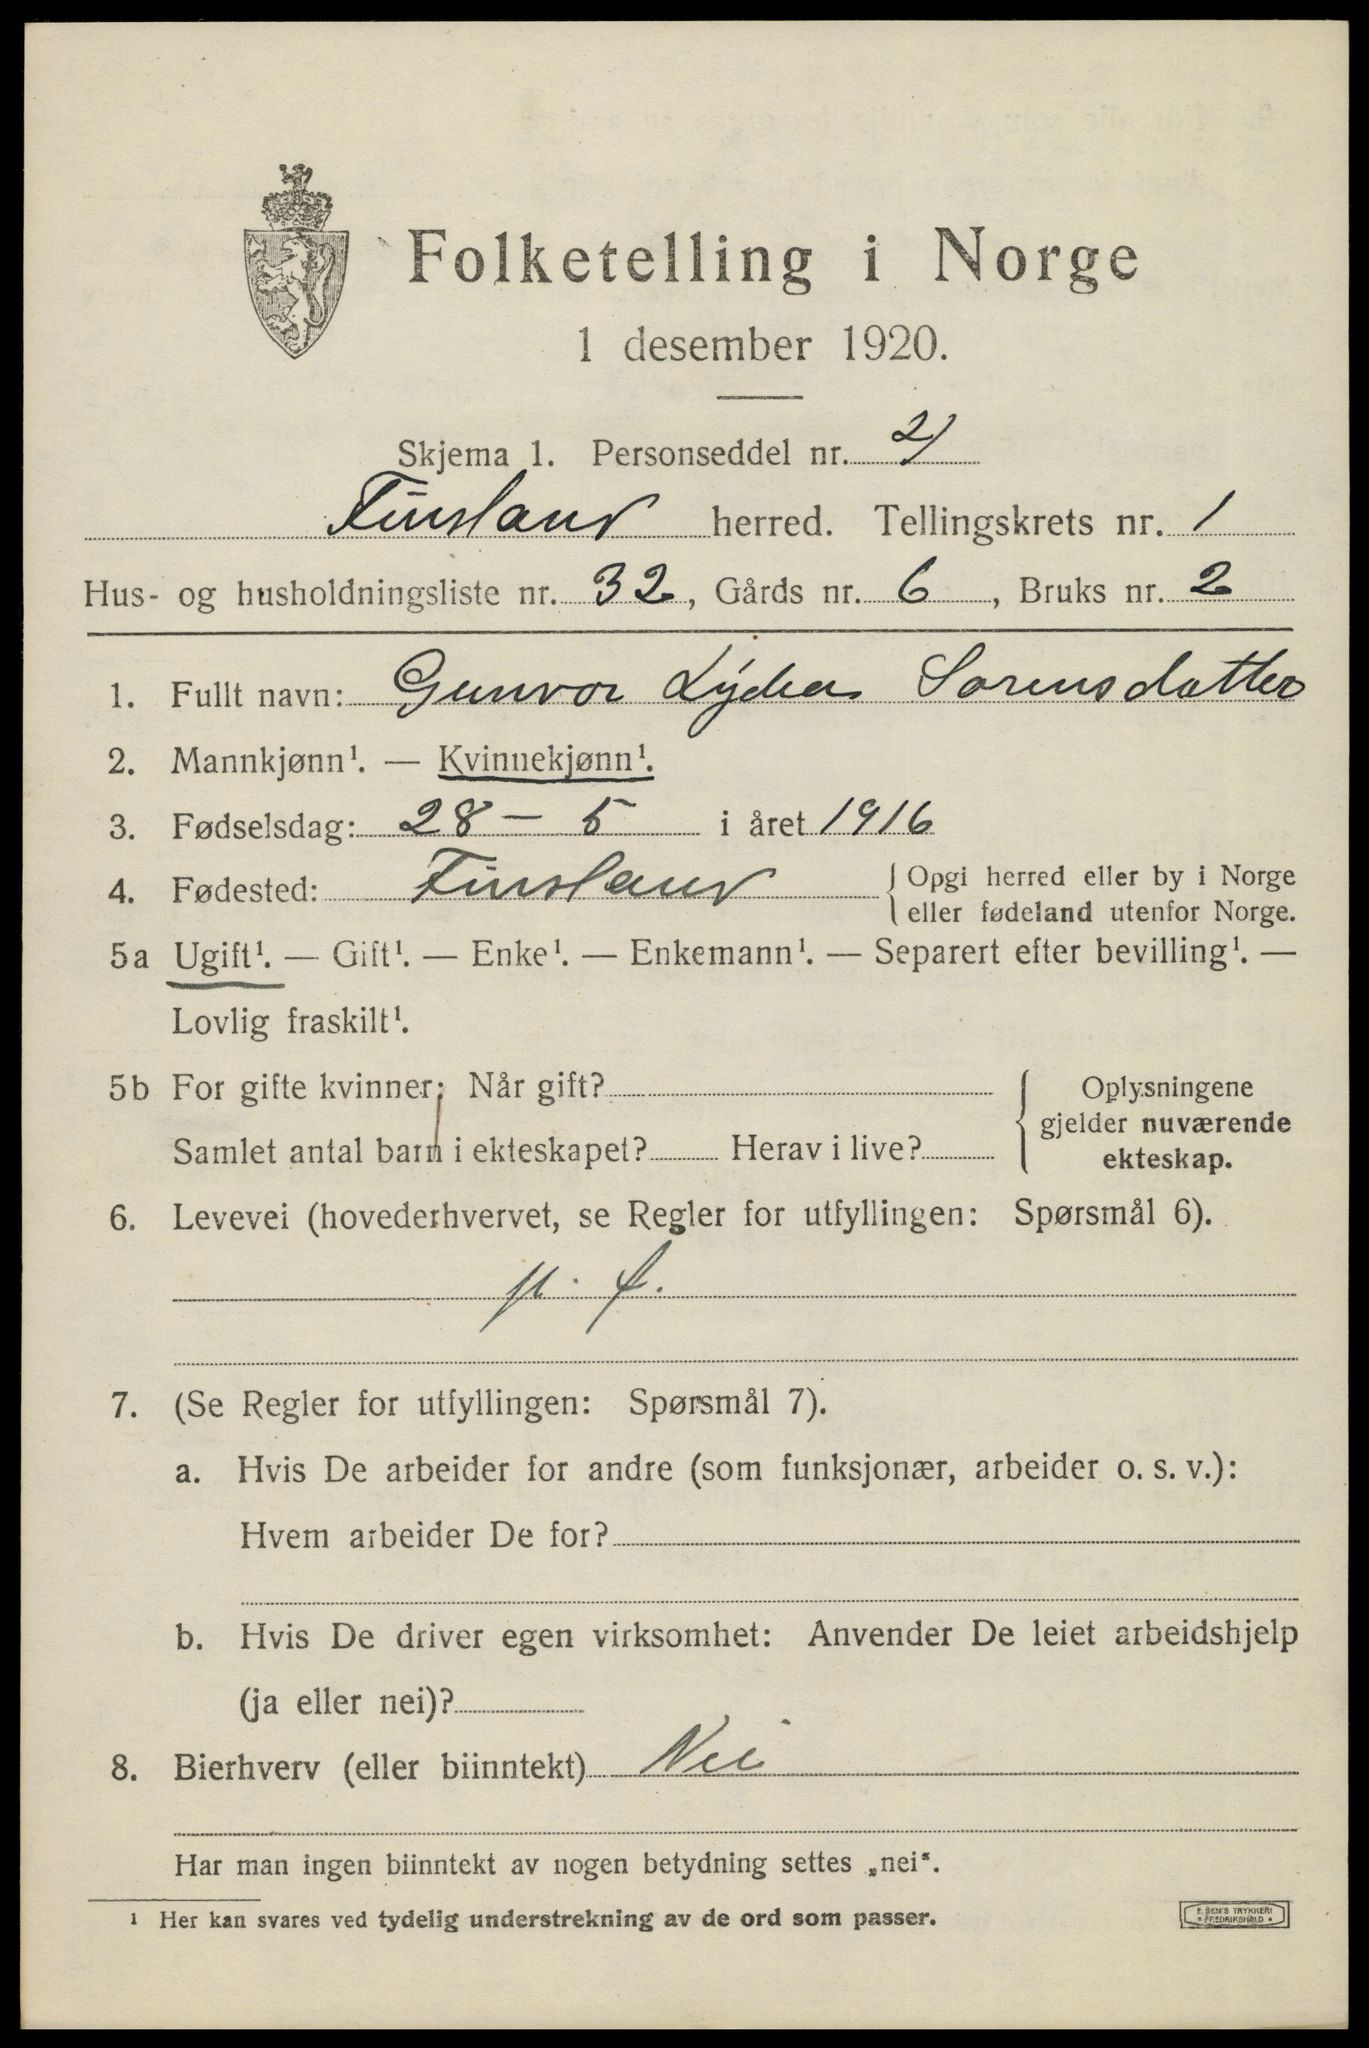 Folketelling i Norge
1 desember 1920.
Skjema 1. Personseddel nr. 2/
Finsland herred. Tellingskrets nr. 1
Hus- og husholdningsliste nr. 32, Gårds nr. 6, Bruks nr. 2
1. Fullt navn: Gunvor Lydia Sorensdatter
2. Mannkjønn¹. — Kvinnekjønn¹.
3. Fødselsdag: 28 - 5 i året 1916
4. Fødested: Finsland { Opgi herred eller by i Norge
eller fødeland utenfor Norge.
5a Ugift¹. — Gift¹. — Enke¹. — Enkemann¹. — Separert efter bevilling¹. —
Lovlig fraskilt¹.
5b For gifte kvinner: Når gift?
Samlet antal barn i ekteskapet? Herav i live?
{ Oplysningene
gjelder nuværende
ekteskap.
6. Levevei (hovederhvervet, se Regler for utfyllingen: Spørsmål 6).
7. (Se Regler for utfyllingen: Spørsmål 7).
a. Hvis De arbeider for andre (som funksjonær, arbeider o. s. v.):
Hvem arbeider De for?
b. Hvis De driver egen virksomhet: Anvender De leiet arbeidshjelp
(ja eller nei)?
8. Bierhverv (eller biinntekt) Nei
Har man ingen biinntekt av nogen betydning settes „nei“.
¹ Her kan svares ved tydelig understrekning av de ord som passer.
E. SEM'S TRYKKERI
* FREDRIKSHALD *